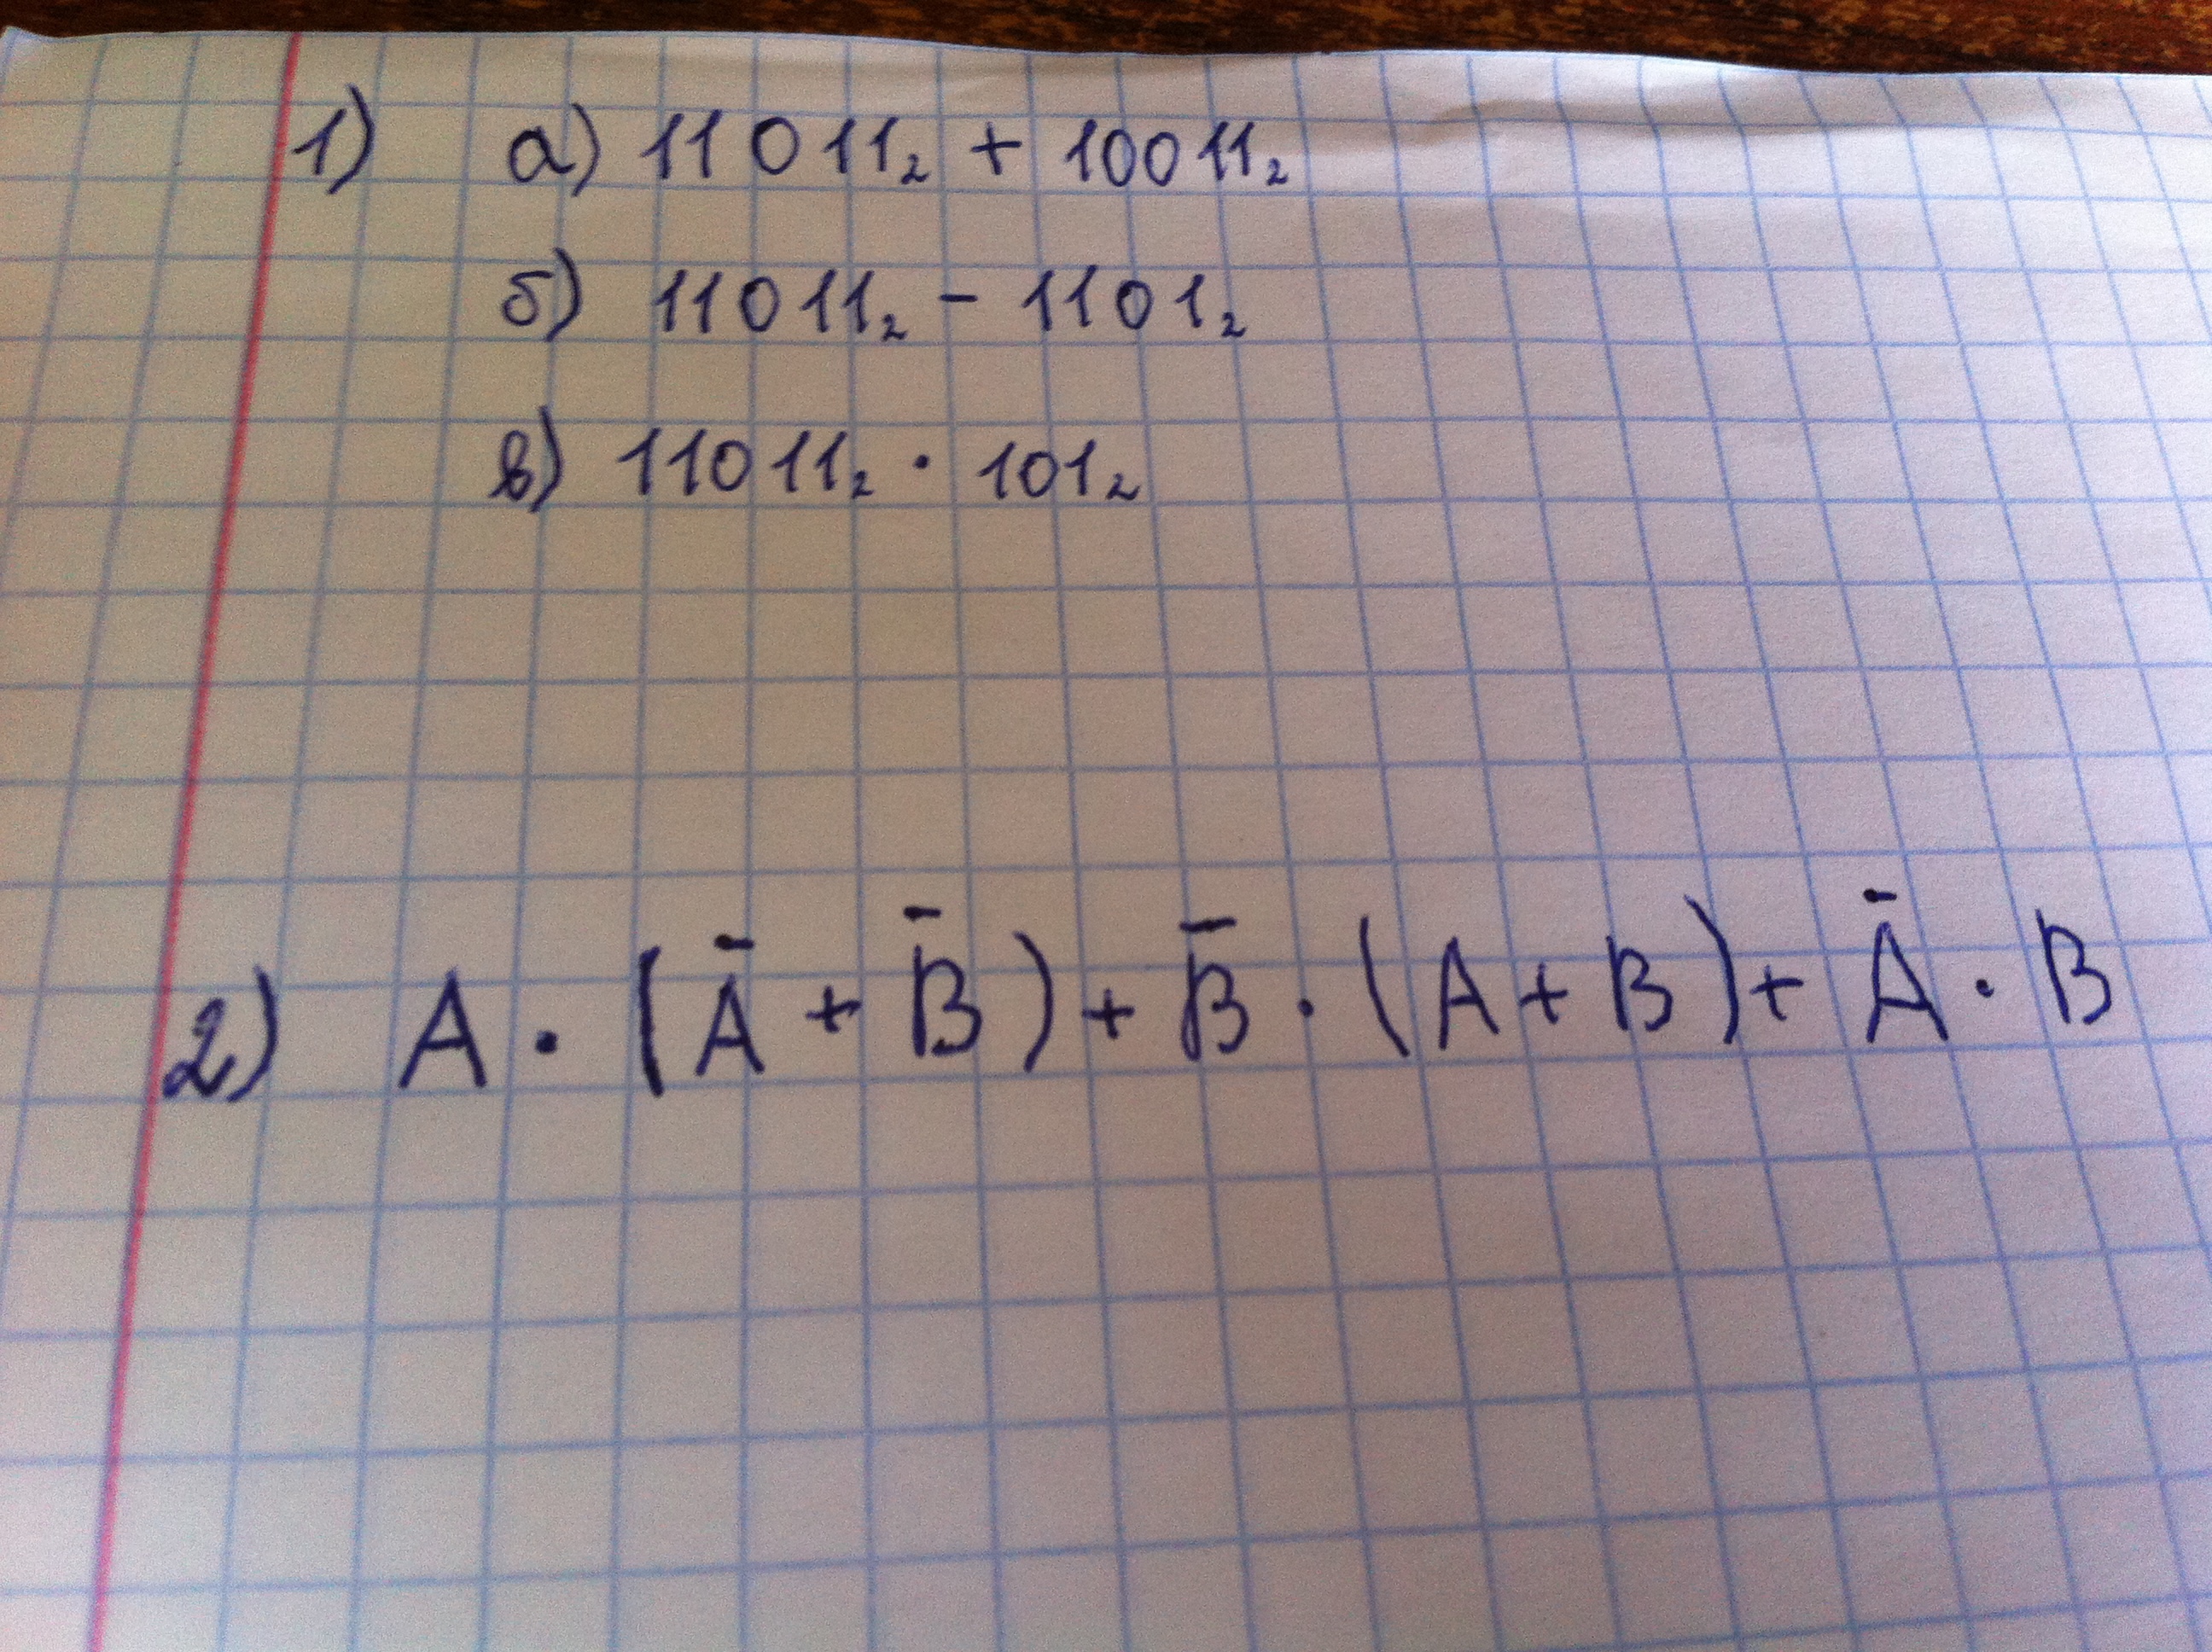 1) а) 11011₂ + 10011₂
б) 11011₂ - 1101₂
в) 11011₂ · 101₂
2) A · (Ā + B̄) + B̄ · (A + B) + Ā · B